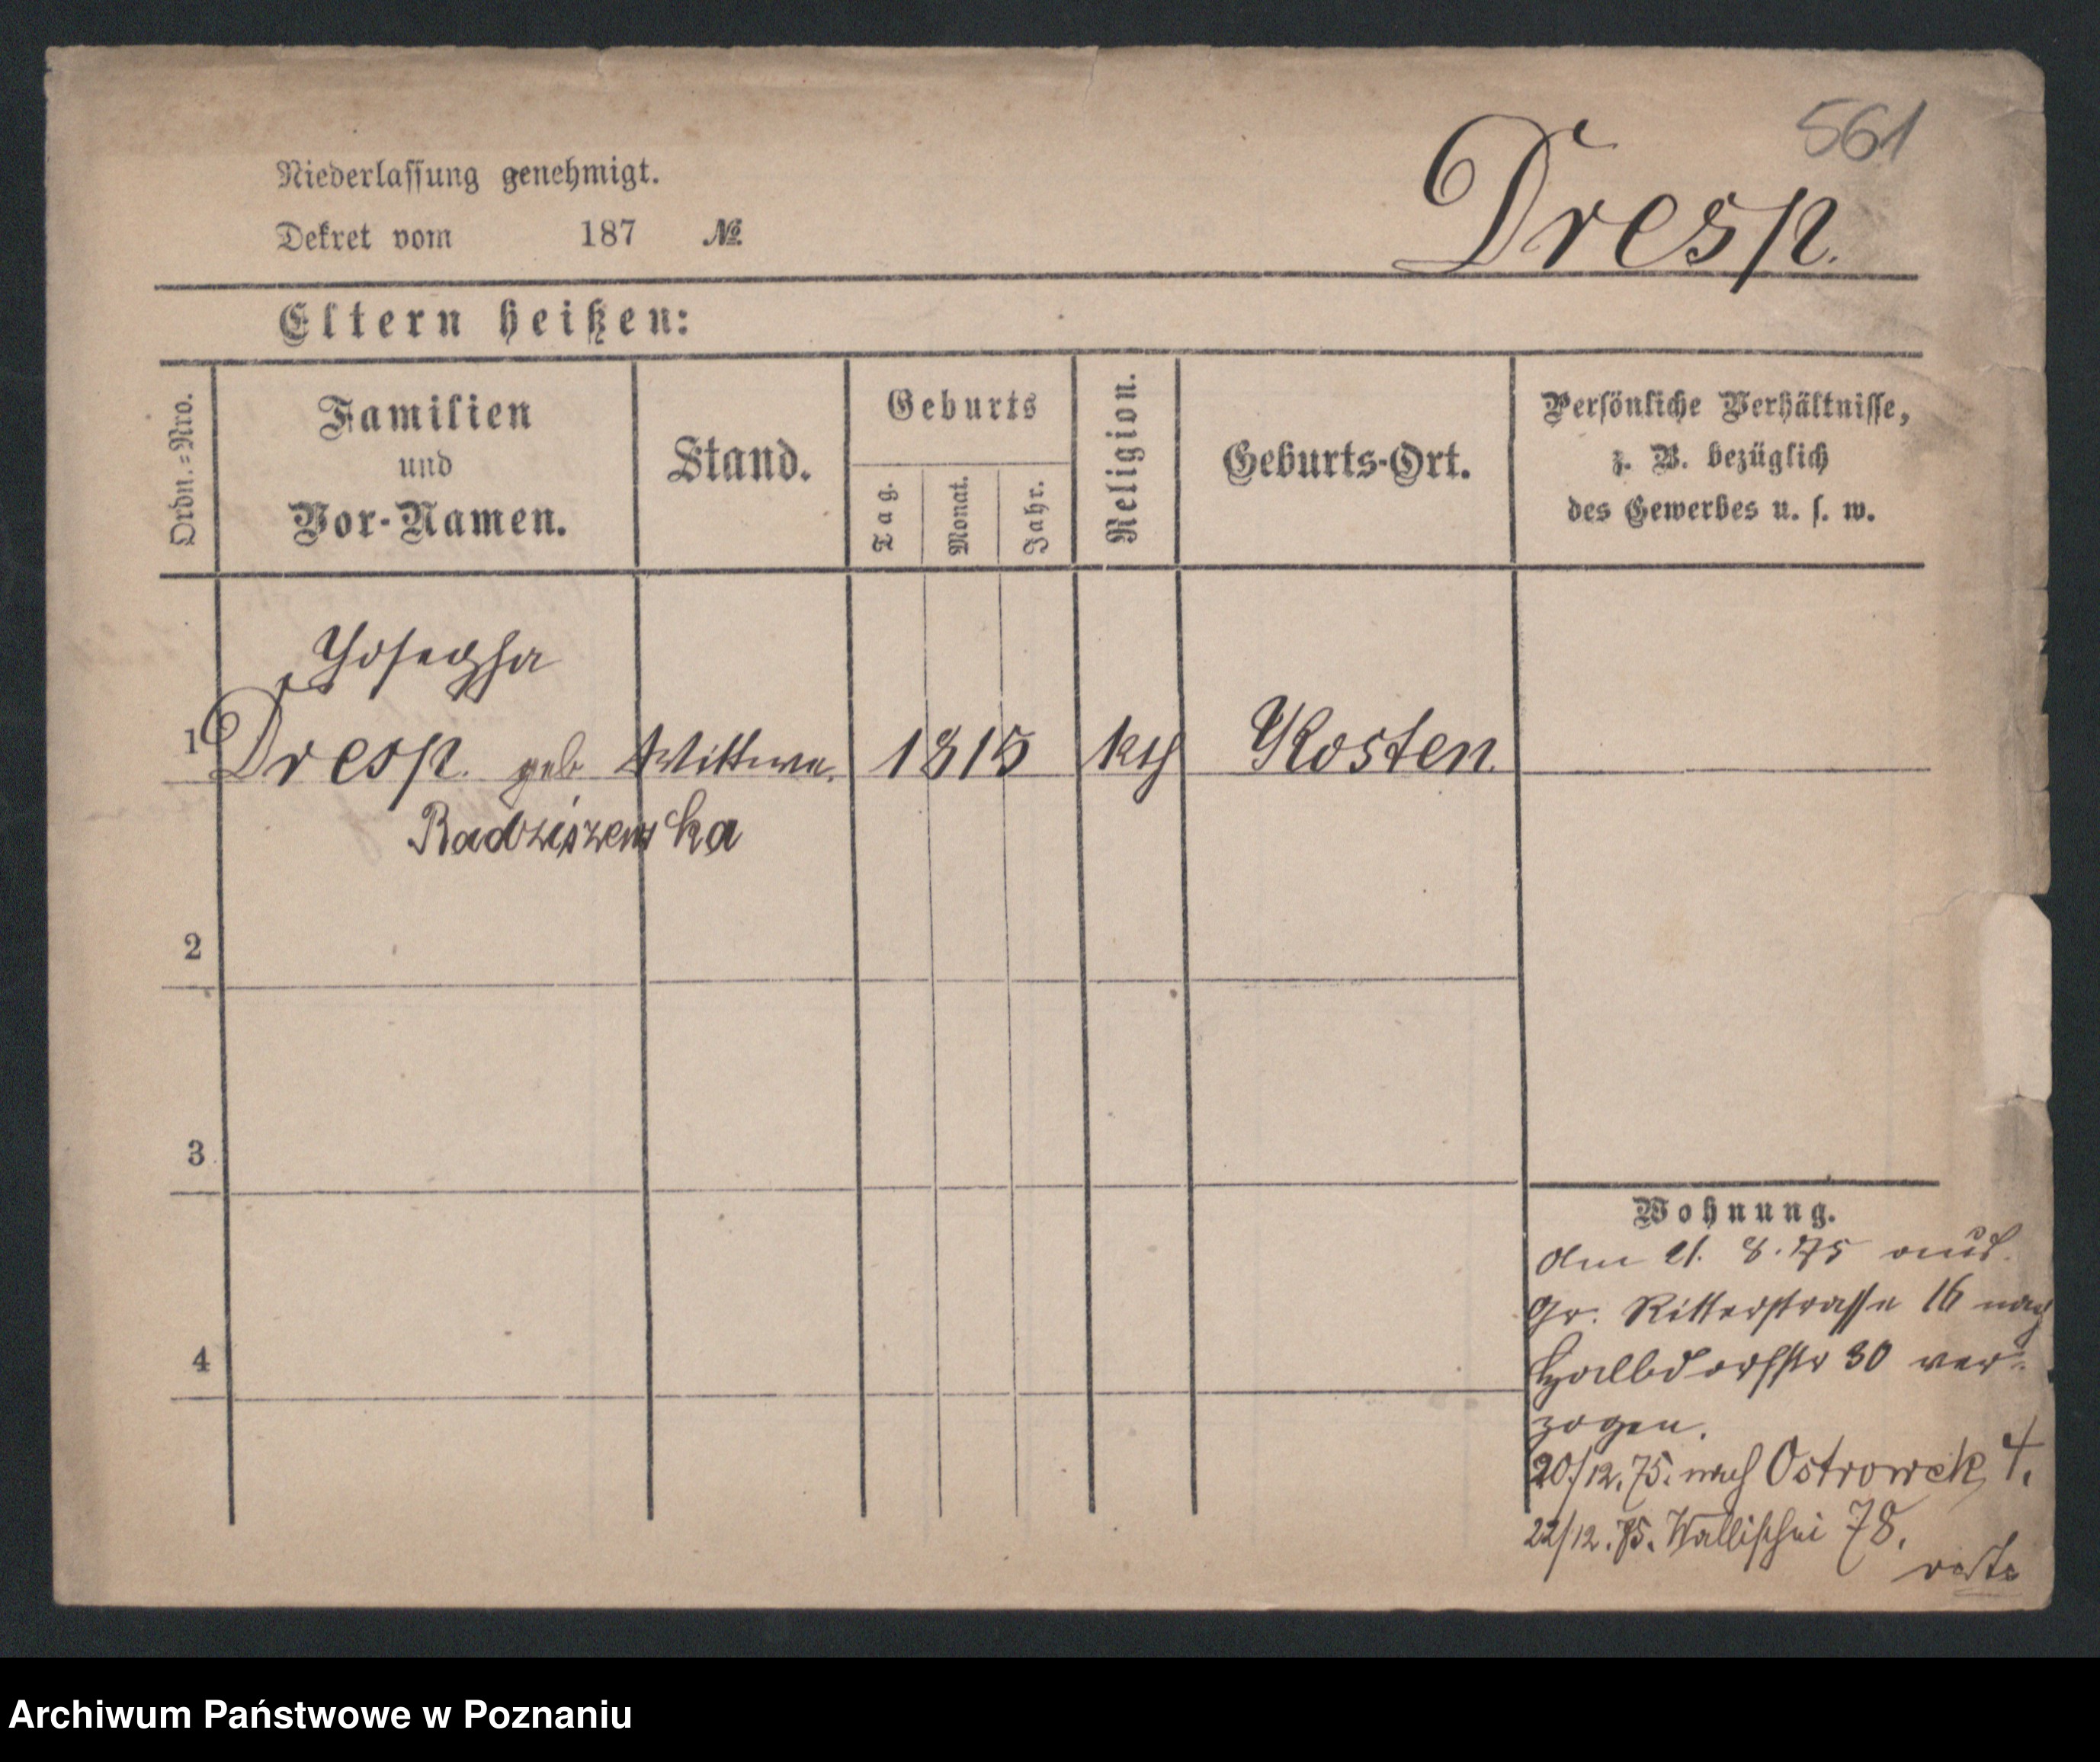 561
Dresp.
Niederlassung genehmigt.
Dekret vom 187 №
Eltern heißen:
Ordn.=Nro.
Familien
und
Vor-Namen.
Stand.
Geburts
Tag.
Monat.
Jahr.
Religion.
Geburts-Ort.
Persönliche Verhältnisse,
z. B. bezüglich
des Gewerbes u. s. w.
Josepha
1 Dresp. geb Wittwe. 1815 kth Kosten.
Radziszewska
2
3
4
Wohnung.
Am 21. 8. 75 aus
Gr. Ritterstrasse 16 nach
Halbdorfstr 30 ver-
zogen.
20/12.75. nach Ostrowek 4.
22/12.75. Wallischei 78.
Archiwum Państwowe w Poznaniu